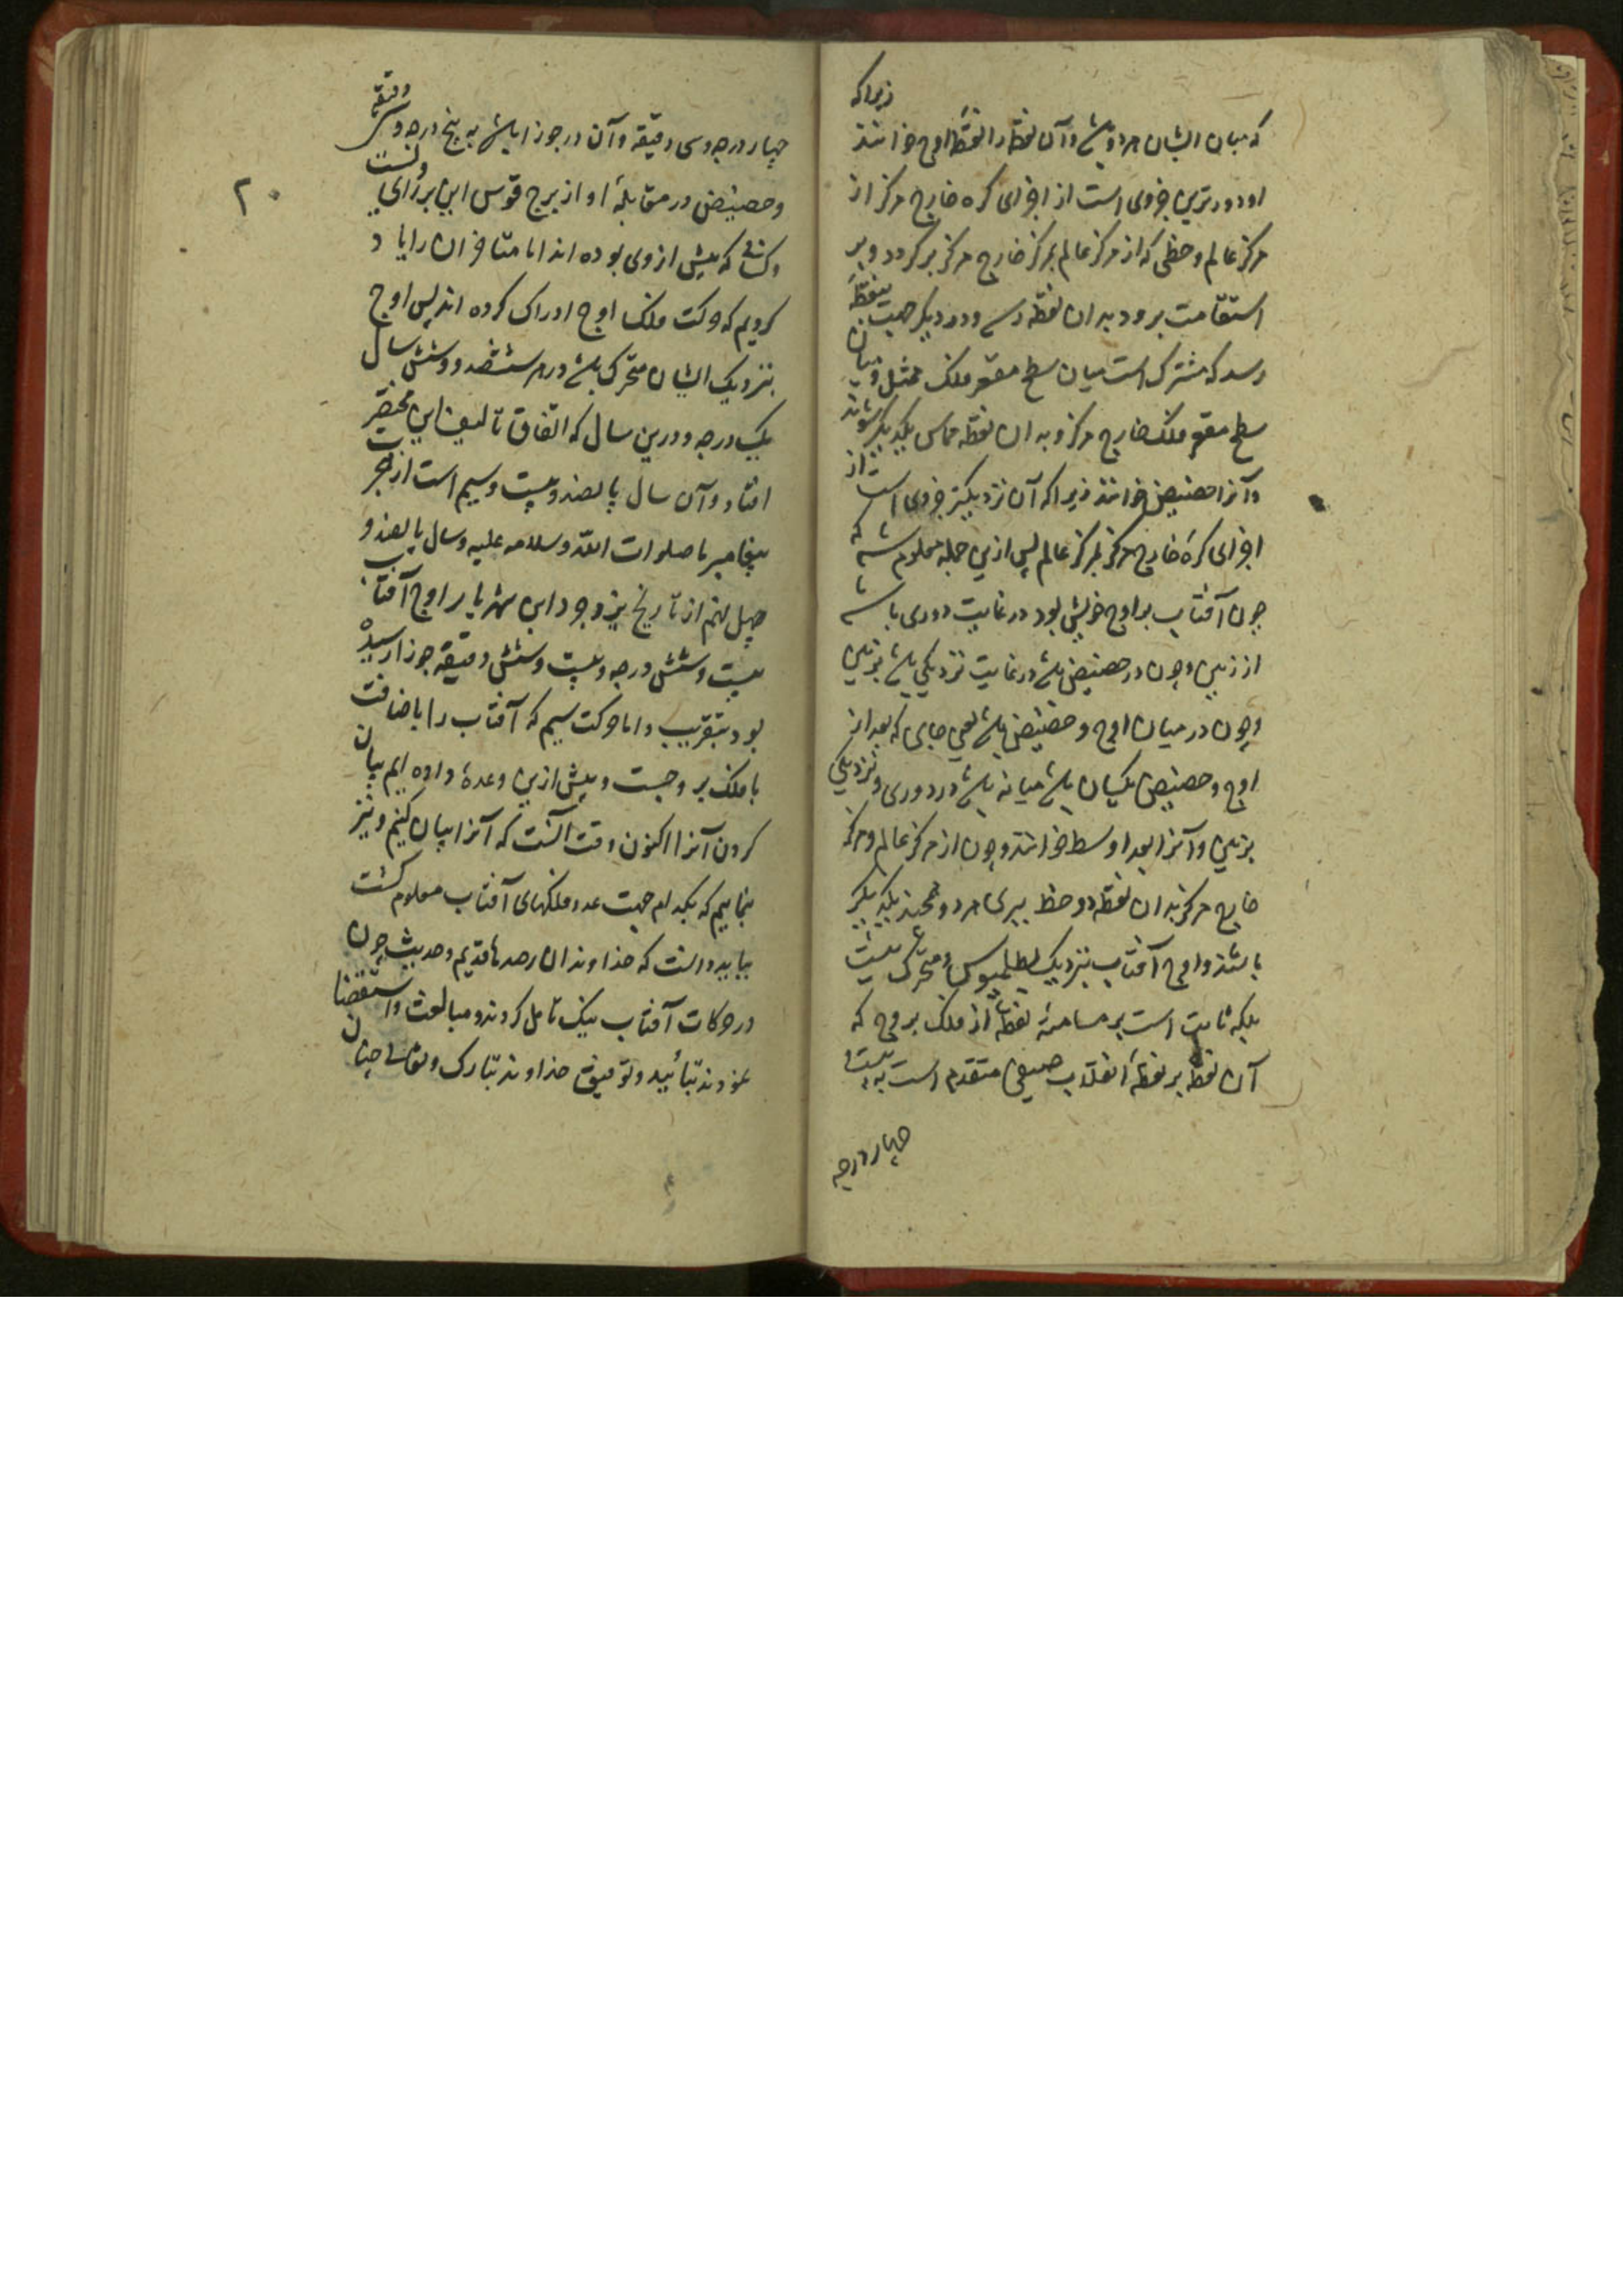 که میان ایشان هر دو باشد و آن نقطه را نقطهٔ اوج خوانند زیرا که
او دورترین جزوی است از اجزای کره خارج مرکز از
مرکز عالم و خطی که از مرکز عالم بمرکز خارج مرکز برگردد و بر
استقامت برود بدان نقطه رسد و در دیگر جهت بنقطهٔ
رسد که مشترک است میان سطح مقعر فلک ممثل و میان
سطح مقعر فلک خارج مرکز و بدان نقطه مماس یکدیگر شوند
و آنرا حضیض خوانند زیرا که آن نزدیکتر جزوی است از
اجزای کرهٔ خارج مرکز بمرکز عالم پس ازین جمله معلوم شد که
چون آفتاب بر اوج خویش بود در غایت دوری باشد
از زمین و چون در حضیض باشد در غایت نزدیکی باشد بزمین
و چون در میان اوج و حضیض باشد یعنی جای که بعد از
اوج و حضیض یکسان باشد میانه باشد در دوری و نزدیکی
بزمین و آنرا بعد اوسط خوانند و چون از مرکز عالم و مرکز
خارج مرکز بدان نقطه دو خط بیری هر دو همچند یکدیگر
باشند و اوج آفتاب بنزدیک بطلمیوس متحرک نیست
بلکه ثابت است بر مسامتهٔ نقطهٔ از فلک بروج که
آن نقطه بر نقطهٔ انقلاب صیفی متقدم است به بیست
چهار درجه
۲۰
چهار درجه و سی دقیقه و آن در جوزا باشد به پنج درجه و سی دقیقه
و حضیض در مقابلهٔ او از برج قوس این بر رأی ویست
و کسانی که پیش از وی بوده اند اما متأخران را یاد
کردیم که حرکت فلک اوج ادراک کرده اند پس اوج
بنزدیک ایشان متحرک باشد در هر شصت و شش سال
یک درجه و درین سال که اتفاق تألیف این مختصر
افتاد و آن سال پانصد و بیست و سیم است از هجرت
پیغامبر ما صلوات الله و سلامه علیه و سال پانصد و
چهل نهم از تاریخ یزدجرد ابن شهریار اوج آفتاب
بیست و شش درجه و بیست و شش دقیقه جوزا رسیده
بود بتقریب و اما حرکت سیم که آفتاب را باضافت
با فلک بروجست و پیش ازین وعدهٔ داده ایم بیان
کردن آنرا اکنون وقت آنست که آنرا بیان کنیم و نیز
بنماییم که بکدام جهت عدد فلکهای آفتاب معلوم گشت
بباید دانست که خداوندان رصدها قدیم و حدیث چون
در حرکات آفتاب نیک تأمل کردند و مبالغت و استقصا
نمودند بتأیید و توفیق خداوند تبارک و تعالی چنان